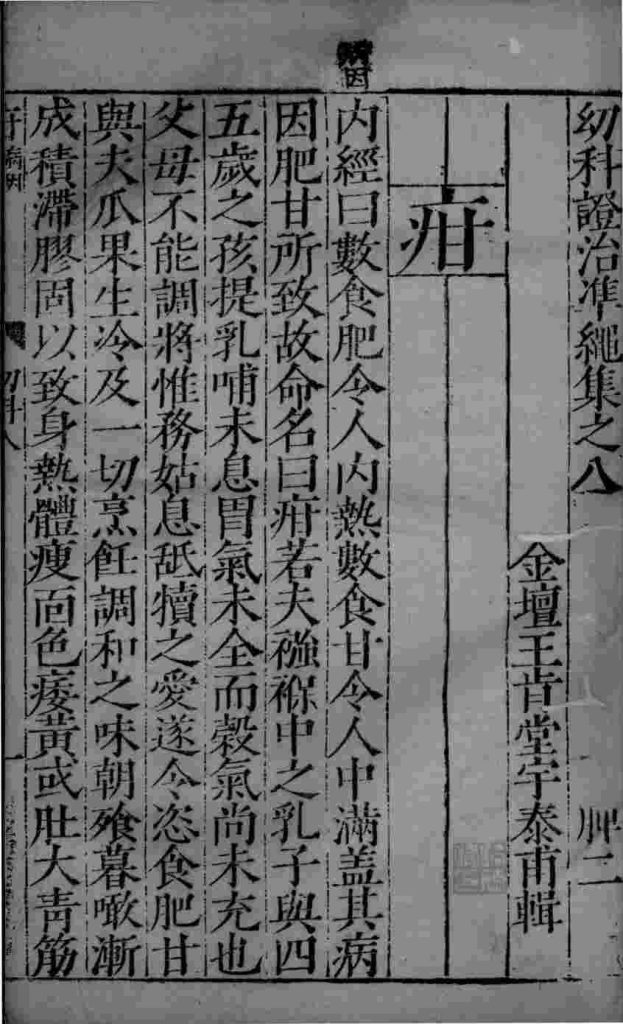 幼科證治準繩集之八 脾二
金壇王肯堂宇泰甫輯
疳
解因
内經曰數食肥令人内熱數食甘令人中滿盖其病
因肥甘所致故命名曰疳若夫襁褓中之乳子與四
五歲之孩提乳哺未息胃氣未全而穀氣尚未充也
父母不能調將惟務姑息舐犢之愛遂令恣食肥甘
與夫瓜果生冷及一切烹飪調和之味朝飱暮噉漸
成積滯膠固以致身熱體瘦面色痿黄或肚大青筋
幼科八 一